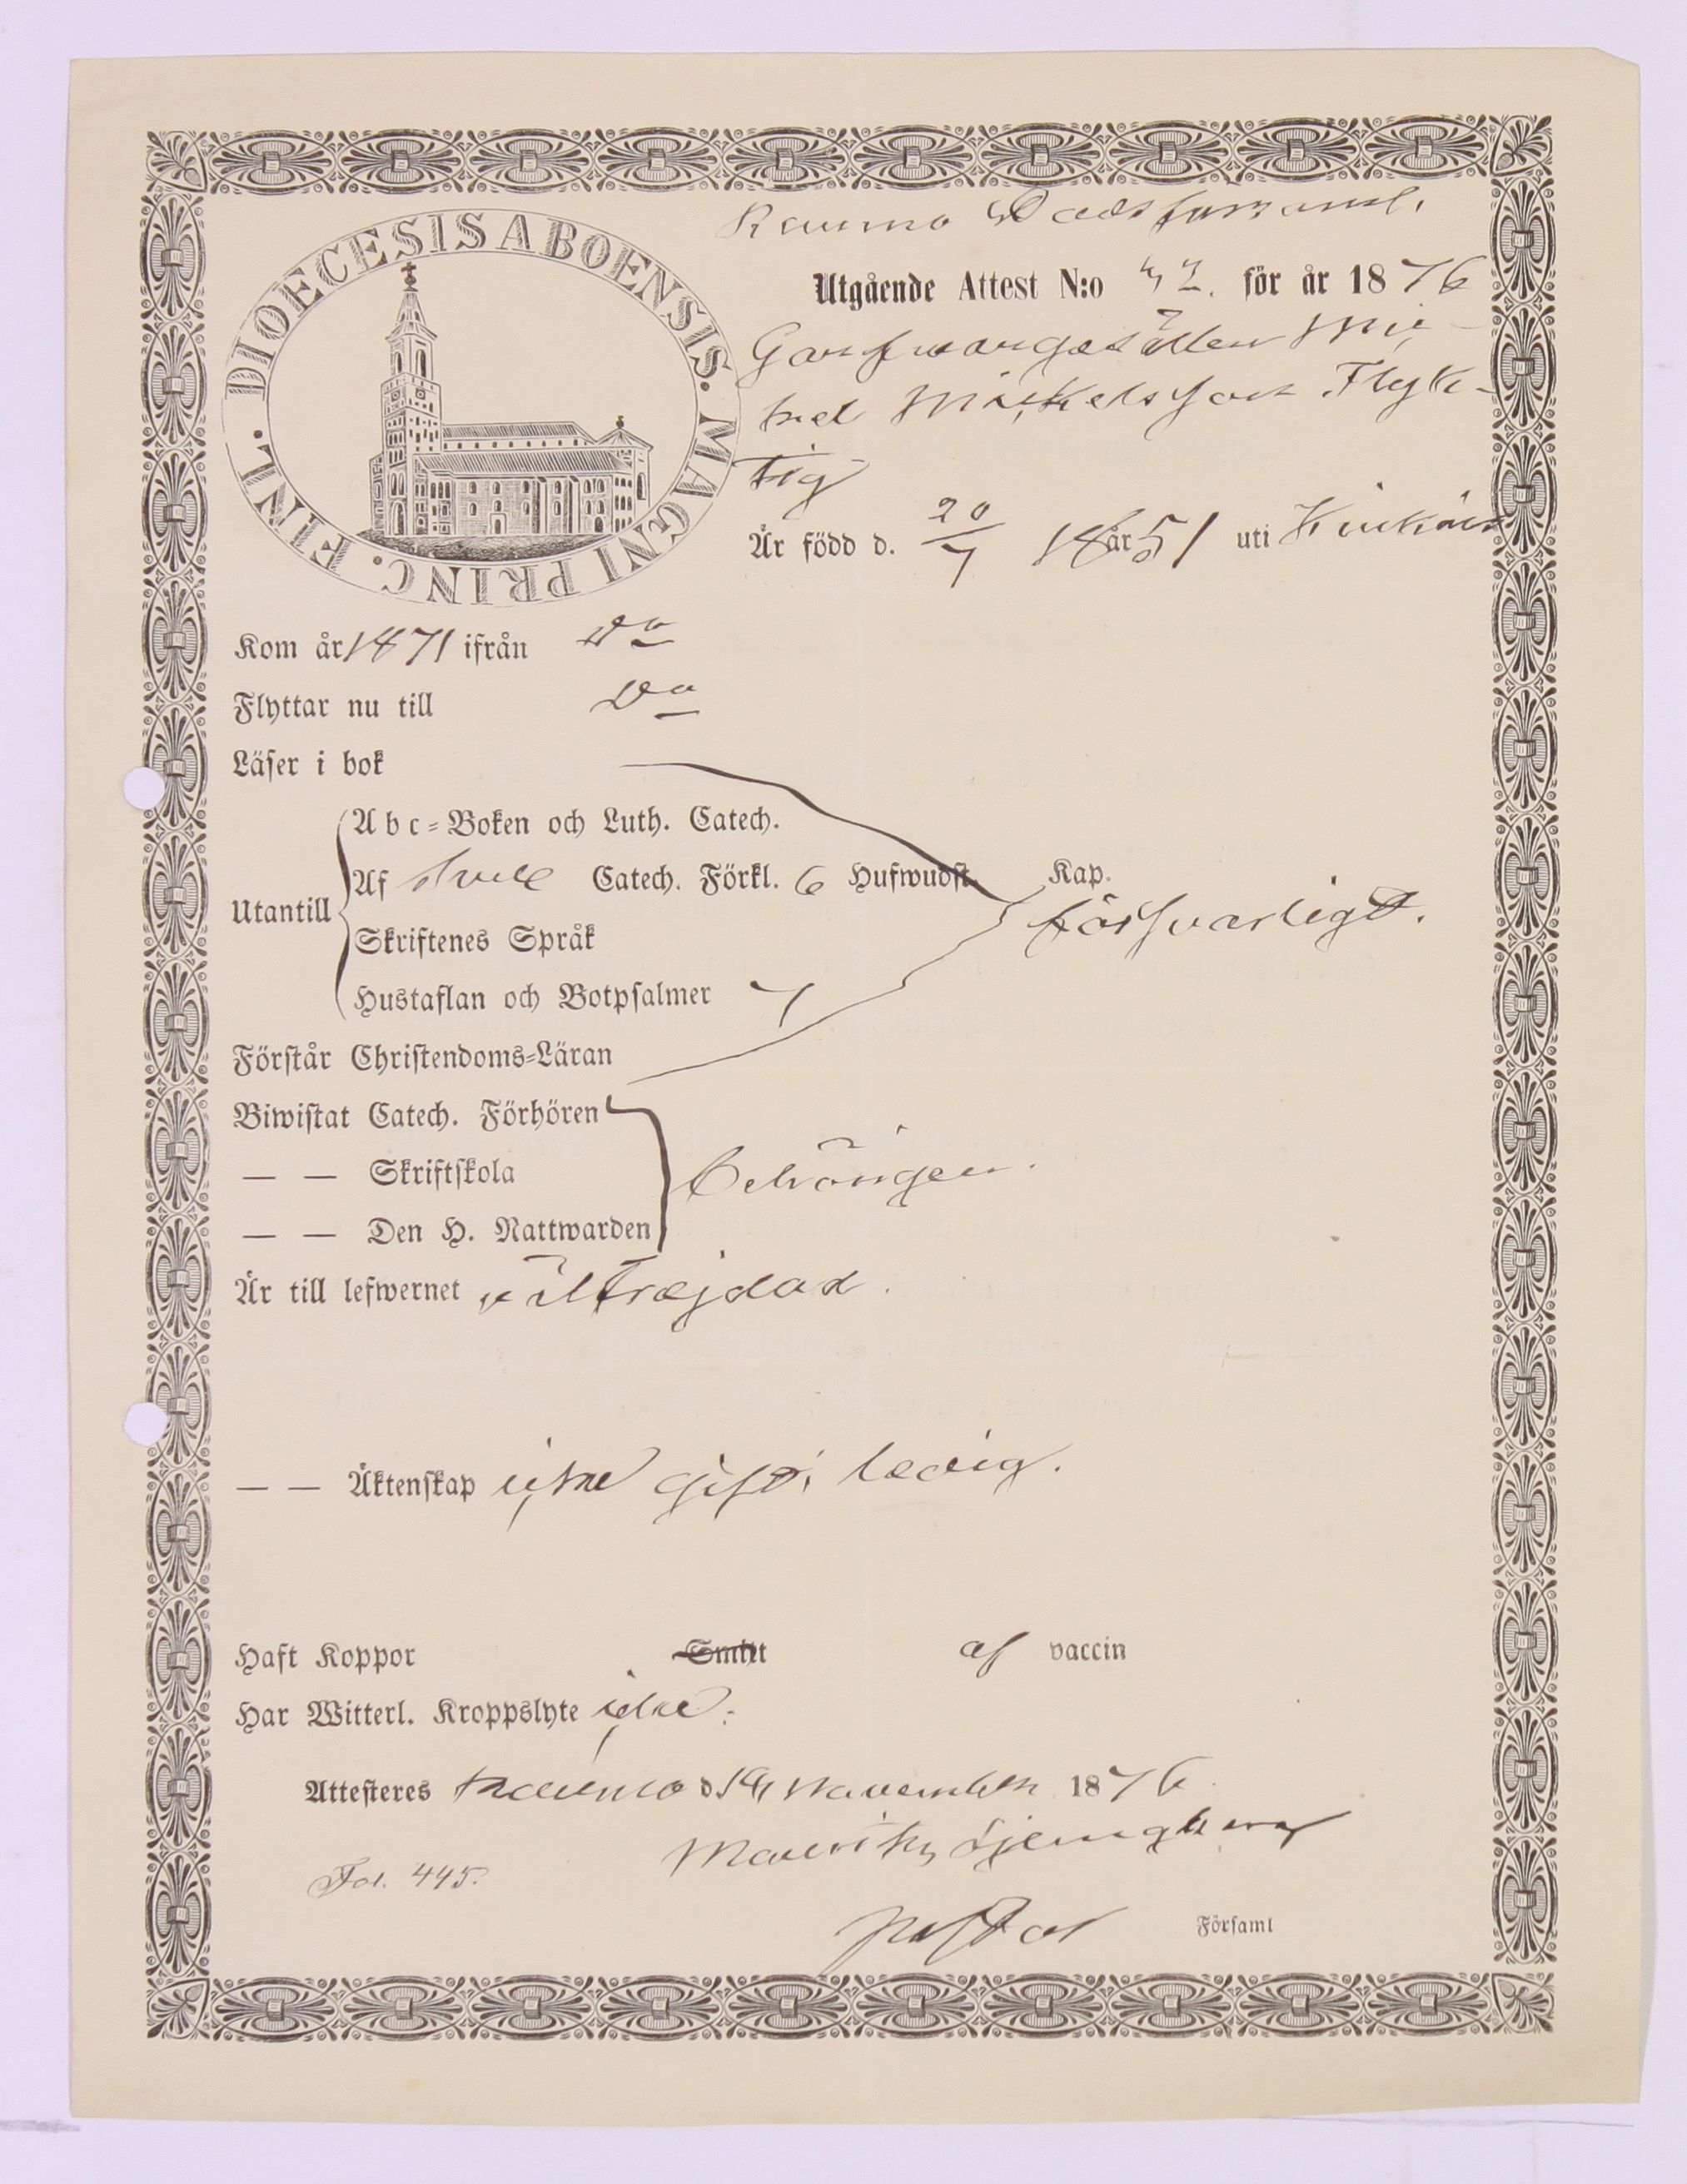 DIOECESIS ABOENSIS. MAGNI PRINC. FINL.
Raumo Stadsförsaml.
Utgående Attest N:o 42. för år 1876
Garfwaregesällen Mi-
kel Mickelsson Flyk-
tig
Är född d. 20/7 år 1851 uti Kiukais
Kom år 1871 ifrån Do
Flyttar nu till Do
Läser i bok
Abc-Boken och Luth. Catech.
Utantill Af Catech. Förkl. 6 Hufwudst. Kap.
försvarligt.
Skriftenes Språk
Hustaflan och Botpsalmer 7
Förstår Christendoms-Läran
Biwistat Catech. Förhören
— — Skriftskola behörigen.
— — Den H. Nattwarden
Är till lefwernet välfrejdad.
— — Äktenskap icke gift; ledig.
Haft Koppor Smitt af vaccin
Har Witterl. Kroppslyte icke.
Attesteres Raumo d. 14 November 1876.
Fol. 445.
pastor Församl